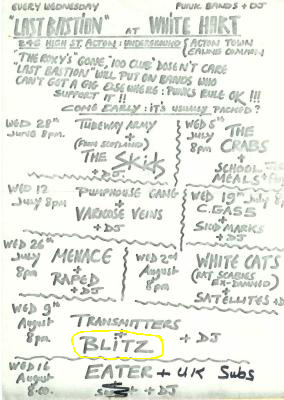 EVERY WEDNESDAY PUNK BANDS + DJ
"LAST BASTION" AT WHITE HART
246 HIGH ST. ACTON: UNDERGROUND { ACTON TOWN
EALING COMMON
"THE ROXY'S" GONE, 100 CLUB DOSEN'T CARE
"LAST BASTION" WILL PUT ON BANDS WHO
CAN'T GET A GIG ELSEWHERE: PUNKS RULE OK !!!
SUPPORT IT !!
COME EARLY: IT'S USUALLY PACKED?
WED 28TH
JUNE 8pm.
TUBEWAY ARMY
+
(FROM SCOTLAND)
THE SKIDS
+ DJ
WED 5TH
JULY
8pm
THE
CRABS
+
SCHOOL
MEALS +
WED 12
JULY 8pm
PUMPHOUSE GANG
+
VARICOSE VEINS
+ DJ
WED 19TH July 8p
C.GAS5
AND
SKID MARKS
+ DJ
WED 26TH
July
8pm
MENACE
+
RAPED
+ DJ
WED 2nd
August
8pm
WHITE CATS
(RAT SCABIES
EX-DAMNED)
+
SATELLITES + D
WED 9TH
August
8pm
TRANSMITTERS
+
BLITZ
+ DJ
WED 16
August
8.00.
EATER + UK Subs
+ DJ